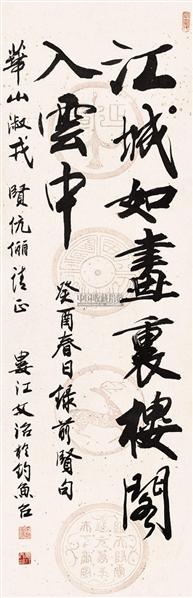 江城如畫裏樓閣
入雲中
癸酉春日錄前賢句
華山淑戎賢伉儷清正
婁江文治於釣魚台